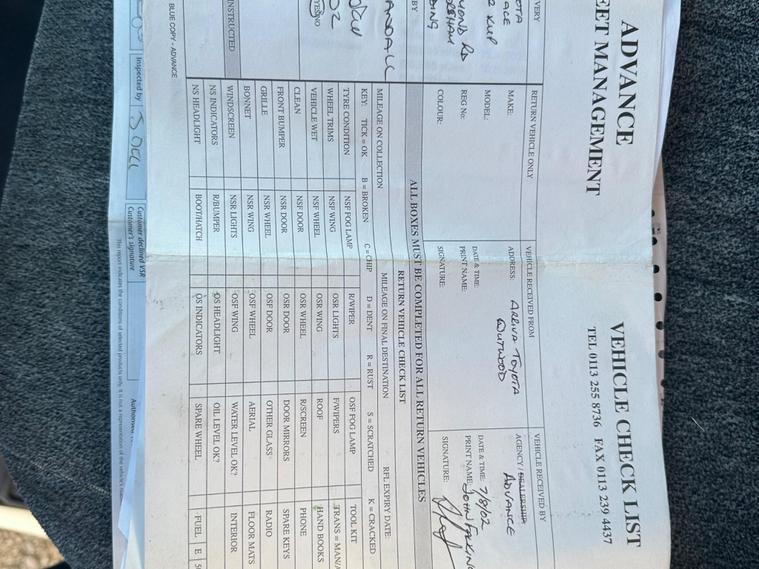 ADVANCE
EET MANAGEMENT
VEHICLE CHECK LIST
TEL 0113 255 8736 FAX 0113 239 4437
VERY
RETURN VEHICLE ONLY
VEHICLE RECEIVED FROM
VEHICLE RECEIVED BY
MAKE:
MODEL:
REG No:
COLOUR:
ADDRESS: ARRIVA TOYOTA
OUTWOOD
DATE & TIME:
PRINT NAME:
SIGNATURE:
AGENCY / DEALERSHIP
ADVANCE
DATE & TIME: 7/8/02
PRINT NAME: JOHN
SIGNATURE:
BY
ALL BOXES MUST BE COMPLETED FOR ALL RETURN VEHICLES
RETURN VEHICLE CHECK LIST
MILEAGE ON COLLECTION
MILEAGE ON FINAL DESTINATION
RFL EXPIRY DATE:
KEY: TICK = OK B = BROKEN C = CHIP D = DENT R = RUST S = SCRATCHED K = CRACKED
TYRE CONDITION NSF FOG LAMP R/WIPER OSF FOG LAMP TOOL KIT
WHEEL TRIMS NSF WING OSR LIGHTS F/WIPERS TRANS = MAN/A
VEHICLE WET NSF WHEEL OSR WING ROOF HAND BOOKS
CLEAN NSF DOOR OSR WHEEL R/SCREEN PHONE
FRONT BUMPER NSR DOOR OSR DOOR DOOR MIRRORS SPARE KEYS
GRILLE NSR WHEEL OSF DOOR OTHER GLASS RADIO
BONNET NSR WING OSF WHEEL AERIAL FLOOR MATS
WINDSCREEN NSR LIGHTS OSF WING WATER LEVEL OK? INTERIOR
NS INDICATORS R/BUMPER OS HEADLIGHT OIL LEVEL OK?
NS HEADLIGHT BOOT/HATCH OS INDICATORS SPARE WHEEL FUEL E
INSTRUCTED
BLUE COPY - ADVANCE
Inspected by
Customer declined VSR
Customer's signature
This report indicates the conditions of selected products only. It is not a representation of the vehicle's